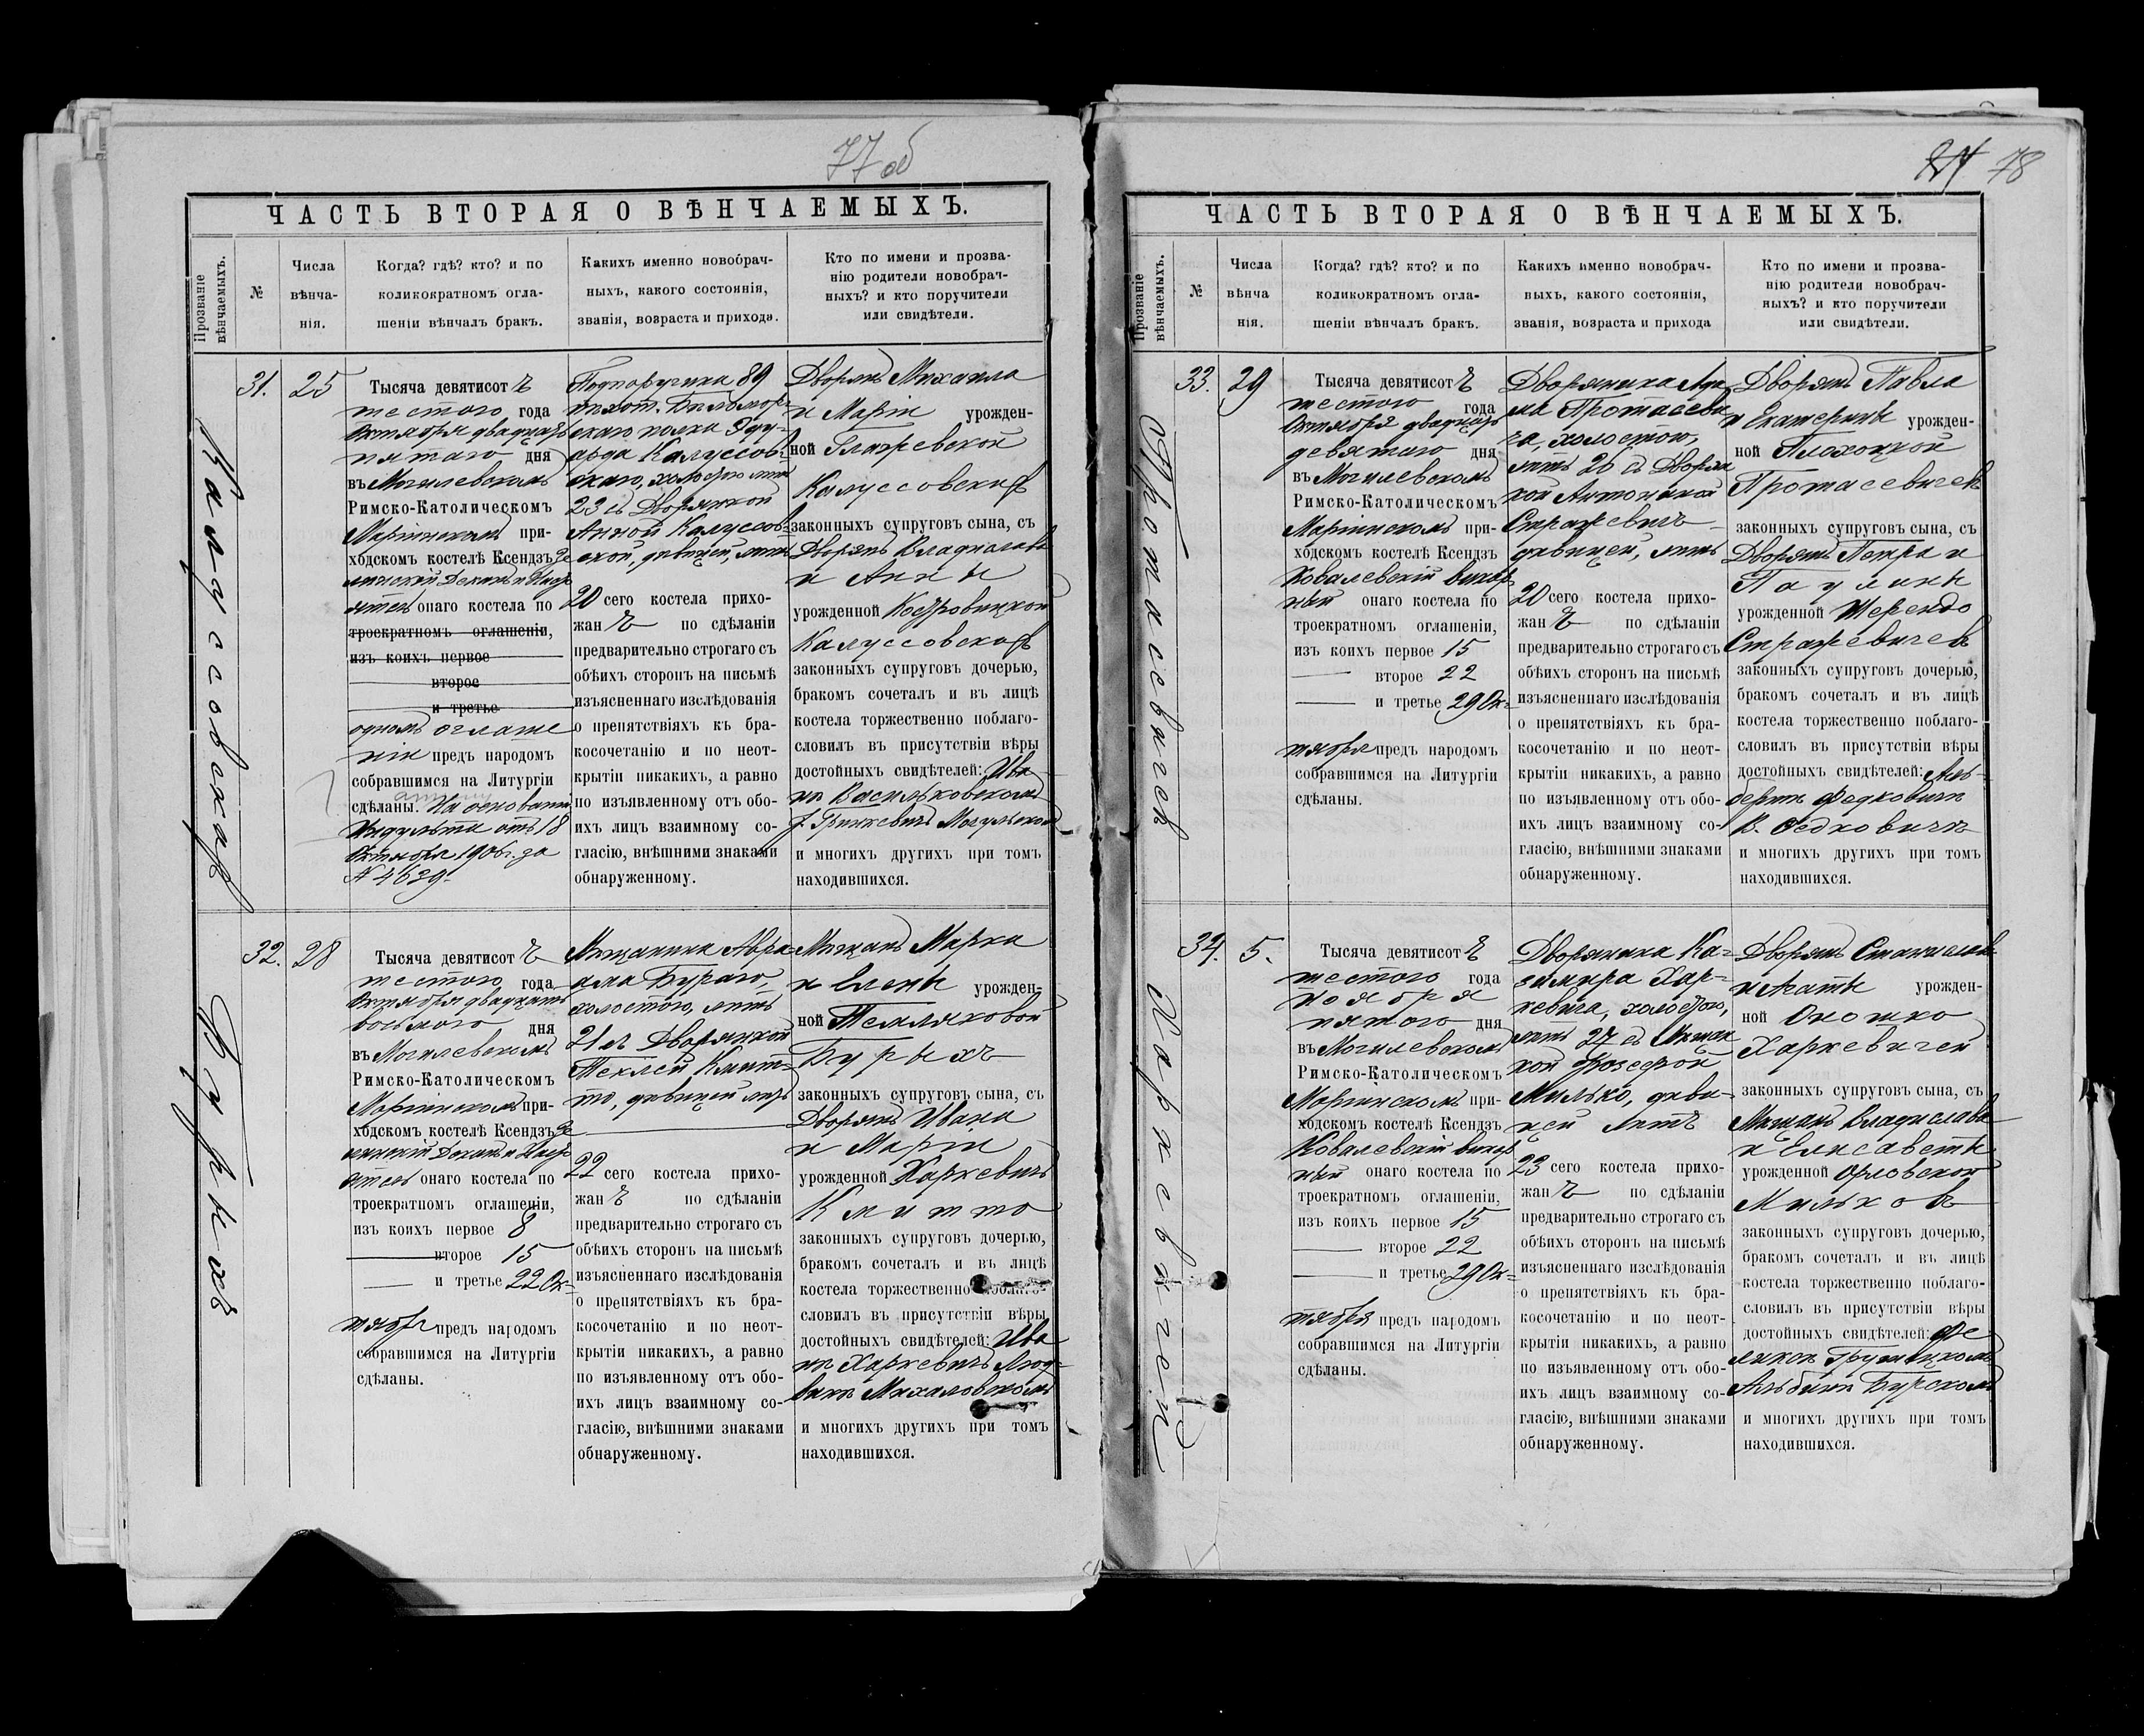 77 об
ЧАСТЬ ВТОРАЯ О ВѢНЧАЕМЫХЪ.
Прозваніе вѣнчаемыхъ.
№
Числа вѣнча-
нія.
Когда? гдѣ? кто? и по
коликократномъ огла-
шеніи вѣнчалъ бракъ.
Какихъ именно новобрач-
ныхъ, какого состоянія,
званія, возраста и прихода.
Кто по имени и прозва-
нію родители новобрач-
ныхъ? и кто поручители
или свидѣтели.
Калуссовскихъ
31.
25
Тысяча девятисотъ
шестого года
Октября двадцать
пятаго дня
въ Могилевскомъ
Римско-Католическомъ
Маріинскомъ при-
ходскомъ костелѣ Ксендзъ
онаго костела по
троекратномъ оглашеніи,
изъ коихъ первое
второе
и третье
одномъ оглаше
ніи предъ народомъ
собравшимся на Литургіи
сдѣланы. На основаніи
Индульта отъ 18
Октября 1906 г. за
№ 4639.
Подпоручика 89
пѣхот. Бѣломор-
скаго полка Эду-
арда Калуссов-
скаго, холостого лѣтъ
23 съ Дворянкой
Анной Калуссов-
ской, дѣвицей, лѣтъ
20 сего костела прихо-
жанъ по сдѣланіи
предварительно строгаго съ
обѣихъ сторонъ на письмѣ
изъясненнаго изслѣдованія
о препятствіяхъ къ бра-
косочетанію и по неот-
крытіи никакихъ, а равно
по изъявленному отъ обо-
ихъ лицъ взаимному со-
гласію, внѣшними знаками
обнаруженному.
Дворянъ Михаила
и Маріи урожден-
ной Глажевской
Калуссовскихъ
законныхъ супруговъ сына, съ
Дворянъ Владислава
и Анны
урожденной
Калуссовскихъ
законныхъ супруговъ дочерью,
бракомъ сочеталъ и въ лицѣ
костела торжественно поблаго-
словилъ въ присутствіи вѣры
достойныхъ свидѣтелей: Ива
нѣ Васильковскомъ
Гринкевичъ
и многихъ другихъ при томъ
находившихся.
Бурыхъ
32.
28
Тысяча девятисотъ
шестого года
Октября двадцать
восьмого дня
въ Могилевскомъ
Римско-Католическомъ
Маріинскомъ при-
ходскомъ костелѣ Ксендзъ
онаго костела по
троекратномъ оглашеніи,
изъ коихъ первое 8
второе 15
и третье 22 Ок-
тября предъ народомъ
собравшимся на Литургіи
сдѣланы.
Мѣщанина Авра-
ама Бураго,
холостого, лѣтъ
21 съ Дворянкой
Теклей Кмит-
то, дѣвицей лѣтъ
22 сего костела прихо-
жанъ по сдѣланіи
предварительно строгаго съ
обѣихъ сторонъ на письмѣ
изъясненнаго изслѣдованія
о препятствіяхъ къ бра-
косочетанію и по неот-
крытіи никакихъ, а равно
по изъявленному отъ обо-
ихъ лицъ взаимному со-
гласію, внѣшними знаками
обнаруженному.
Мѣщанъ Марка
и Елены урожден-
ной Темляковой
Бурыхъ
законныхъ супруговъ сына, съ
Дворянъ Ивана
и Маріи
урожденной Харкевичъ
Кмитто
законныхъ супруговъ дочерью,
бракомъ сочеталъ и въ лицѣ
костела торжественно поблаго-
словилъ въ присутствіи вѣры
достойныхъ свидѣтелей: Ива
нѣ Харкевичъ Люд-
викѣ Михаловскомъ
и многихъ другихъ при томъ
находившихся.
78
ЧАСТЬ ВТОРАЯ О ВѢНЧАЕМЫХЪ.
Прозваніе вѣнчаемыхъ.
№
Числа
вѣнча
нія.
Когда? гдѣ? кто? и по
коликократномъ огла-
шеніи вѣнчалъ бракъ.
Какихъ именно новобрач-
ныхъ, какого состоянія,
званія, возраста и прихода
Кто по имени и прозва-
нію родители новобрач-
ныхъ? и кто поручители
или свидѣтели.
Протасевичей
33.
29
Тысяча девятисотъ
шестого года
Октября двадцать
девятаго дня
въ Могилевскомъ
Римско-Католическомъ
Маріинскомъ при-
ходскомъ костелѣ Ксендзъ
Ковалевскій викар
ный онаго костела по
троекратномъ оглашеніи,
изъ коихъ первое 15
второе 22
и третье 29 Ок-
тября предъ народомъ
собравшимся на Литургіи
сдѣланы.
Дворянина Ада
ма Протасеви
ча, холостого,
лѣтъ 26 съ Дворян
кой Антониной
Стражевичъ
дѣвицей, лѣтъ
20 сего костела прихо-
жанъ по сдѣланіи
предварительно строгаго съ
обѣихъ сторонъ на письмѣ
изъясненнаго изслѣдованія
о препятствіяхъ къ бра-
косочетанію и по неот-
крытіи никакихъ, а равно
по изъявленному отъ обо-
ихъ лицъ взаимному со-
гласію, внѣшними знаками
обнаруженному.
Дворянъ Павла
и Екатерины урожден-
ной Плохоцкой
Протасевичей
законныхъ супруговъ сына, съ
Дворянъ Петра и
Паулины
урожденной Шерендо
Стражевичей
законныхъ супруговъ дочерью,
бракомъ сочеталъ и въ лицѣ
костела торжественно поблаго-
словилъ въ присутствіи вѣры
достойныхъ свидѣтелей: Аль-
бертѣ Федковичъ
В. Федковичъ
и многихъ другихъ при томъ
находившихся.
Харкевичей
34.
5.
Тысяча девятисотъ
шестого года
ноября
пятого дня
въ Могилевскомъ
Римско-Католическомъ
Маріинскомъ при-
ходскомъ костелѣ Ксендзъ
Ковалевскій викар
ный онаго костела по
троекратномъ оглашеніи,
изъ коихъ первое 15
второе 22
и третье 29 Ок-
тября предъ народомъ
собравшимся на Литургіи
сдѣланы.
Дворянина Ка-
зимира Хар-
кевича, холостого,
лѣтъ 27 съ Мѣщан
кой Юзефой
Милько, дѣви-
цей лѣтъ
23 сего костела прихо-
жанъ по сдѣланіи
предварительно строгаго съ
обѣихъ сторонъ на письмѣ
изъясненнаго изслѣдованія
о препятствіяхъ къ бра-
косочетанію и по неот-
крытіи никакихъ, а равно
по изъявленному отъ обо-
ихъ лицъ взаимному со-
гласію, внѣшними знаками
обнаруженному.
Дворянъ Станислава
и Агаты урожден-
ной Оношко
Харкевичей
законныхъ супруговъ сына, съ
Мѣщанъ Владислава
и Елисаветы
урожденной Орловской
Мильковъ
законныхъ супруговъ дочерью,
бракомъ сочеталъ и въ лицѣ
костела торжественно поблаго-
словилъ въ присутствіи вѣры
достойныхъ свидѣтелей: Фе
ликсѣ
Альбинѣ Бурскомъ
и многихъ другихъ при томъ
находившихся.